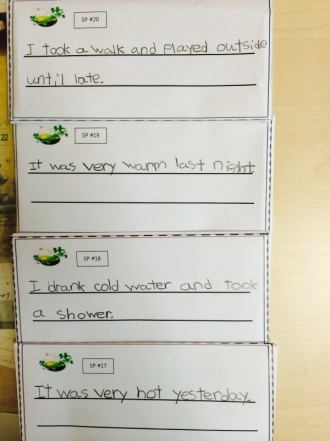 SP #20
I took a walk and played outside
until late.
SP #19
It was very warm last night
SP #18
I drank cold water and took
a shower.
SP #17
It was very hot yesterday.
22